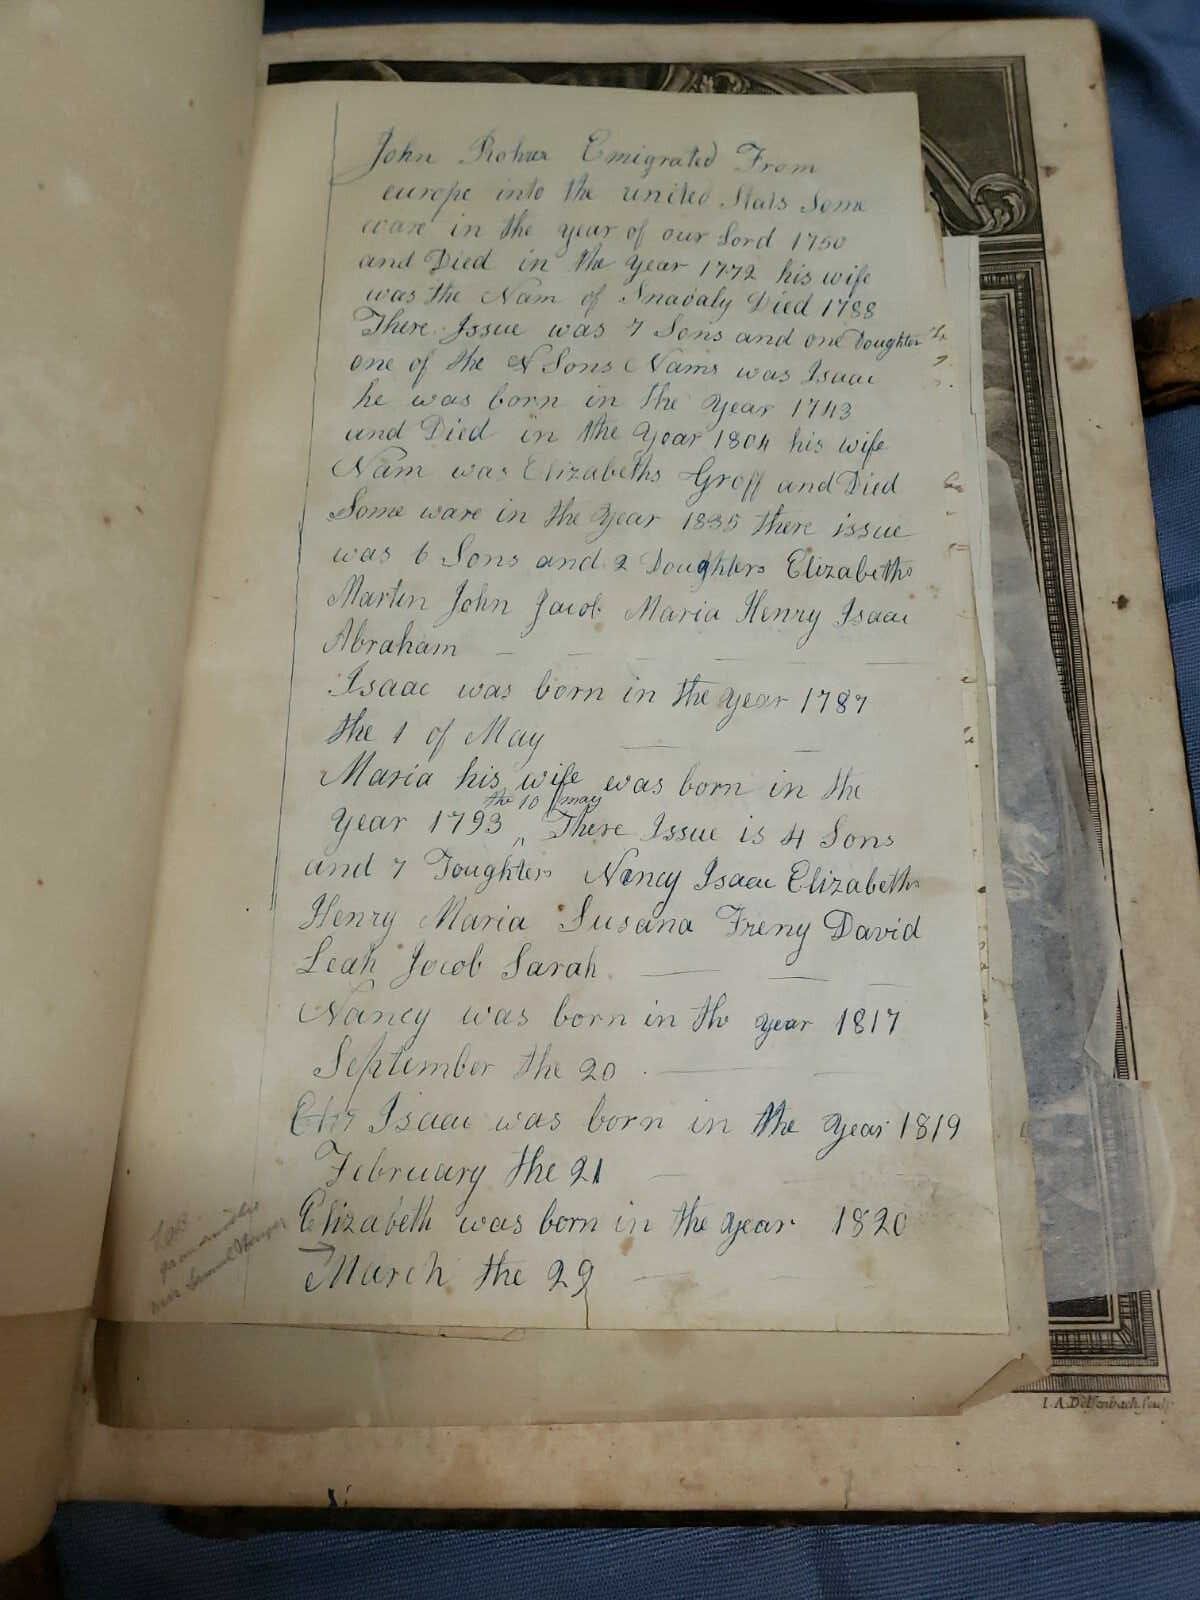 John Rohrer Emigrated From
europe into the united Stats Some
ware in the year of our Lord 1750
and Died in the year 1772 his wife
was the Nam of Snavaly Died 1788
There Issue was 7 Sons and one Doughter
one of the Sons Nams was Isaac
he was born in the year 1743
and Died in the year 1804 his wife
Nam was Elizabeths Groff and Died
Some ware in the year 1835 there issue
was 6 Sons and 2 Doughters Elizabeths
Martin John Jacob Maria Henry Isaac
Abraham
Isaac was born in the year 1787
the 1 of May
Maria his wife was born in the
the 10 may
year 1793 There Issue is 4 Sons
and 7 Doughters Nancy Isaac Elizabeths
Henry Maria Susana Freny David
Leah Jacob Sarah
Nancy was born in the year 1817
September the 20
Isaac was born in the year 1819
February the 21
Elizabeth was born in the year 1820
March the 29
grandmother
Samuel
I.A. Delsenbach sculp